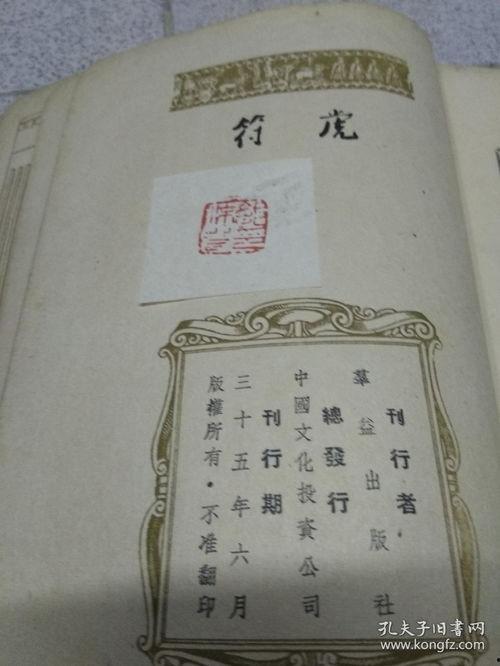 虎符
刊行者·
羣益出版社
總發行
中國文化投資公司
刊行期
三十五年六月
版權所有·不准翻印
孔夫子旧书网
www.kongfz.com